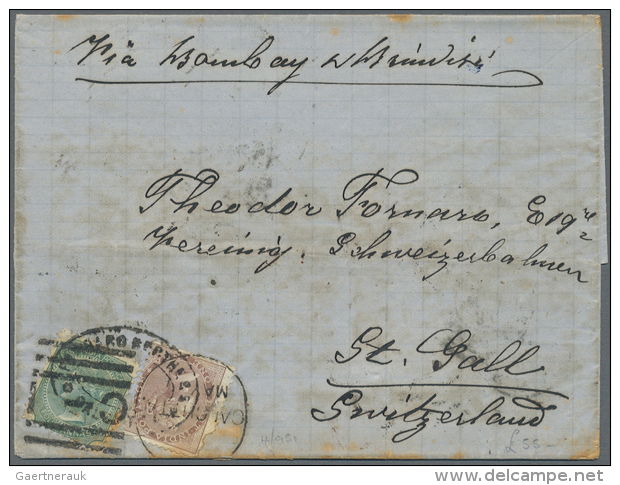 Via Bombay & Brindisi
Theodor Fornaro, Esqre
Vereinig. Schweizerbahnen
St. Gall
Switzerland
£55-
Gaertnerauk
www.delcampe.net